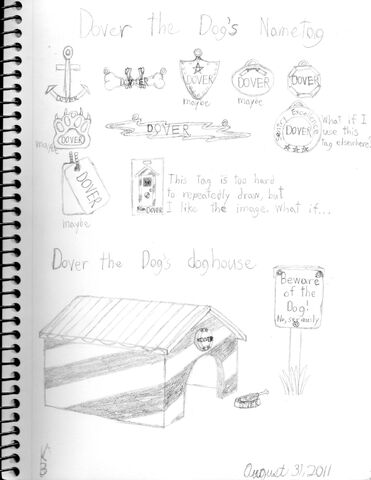 Dover the Dog's Name Tag
DOVER
DOVER
DOVER
DOVER
DOVER
maybe
maybe
DOVER
maybe
DOVER
DOVER
What if I
use this
tag elsewhere?
DOVER
maybe
DOVER
This tag is too hard
to repeatedly draw, but
I like the image. What if...
Dover the Dog's doghouse
DOVER
Beware
of the
Dog!
No, seriously
KB
August 31, 2011